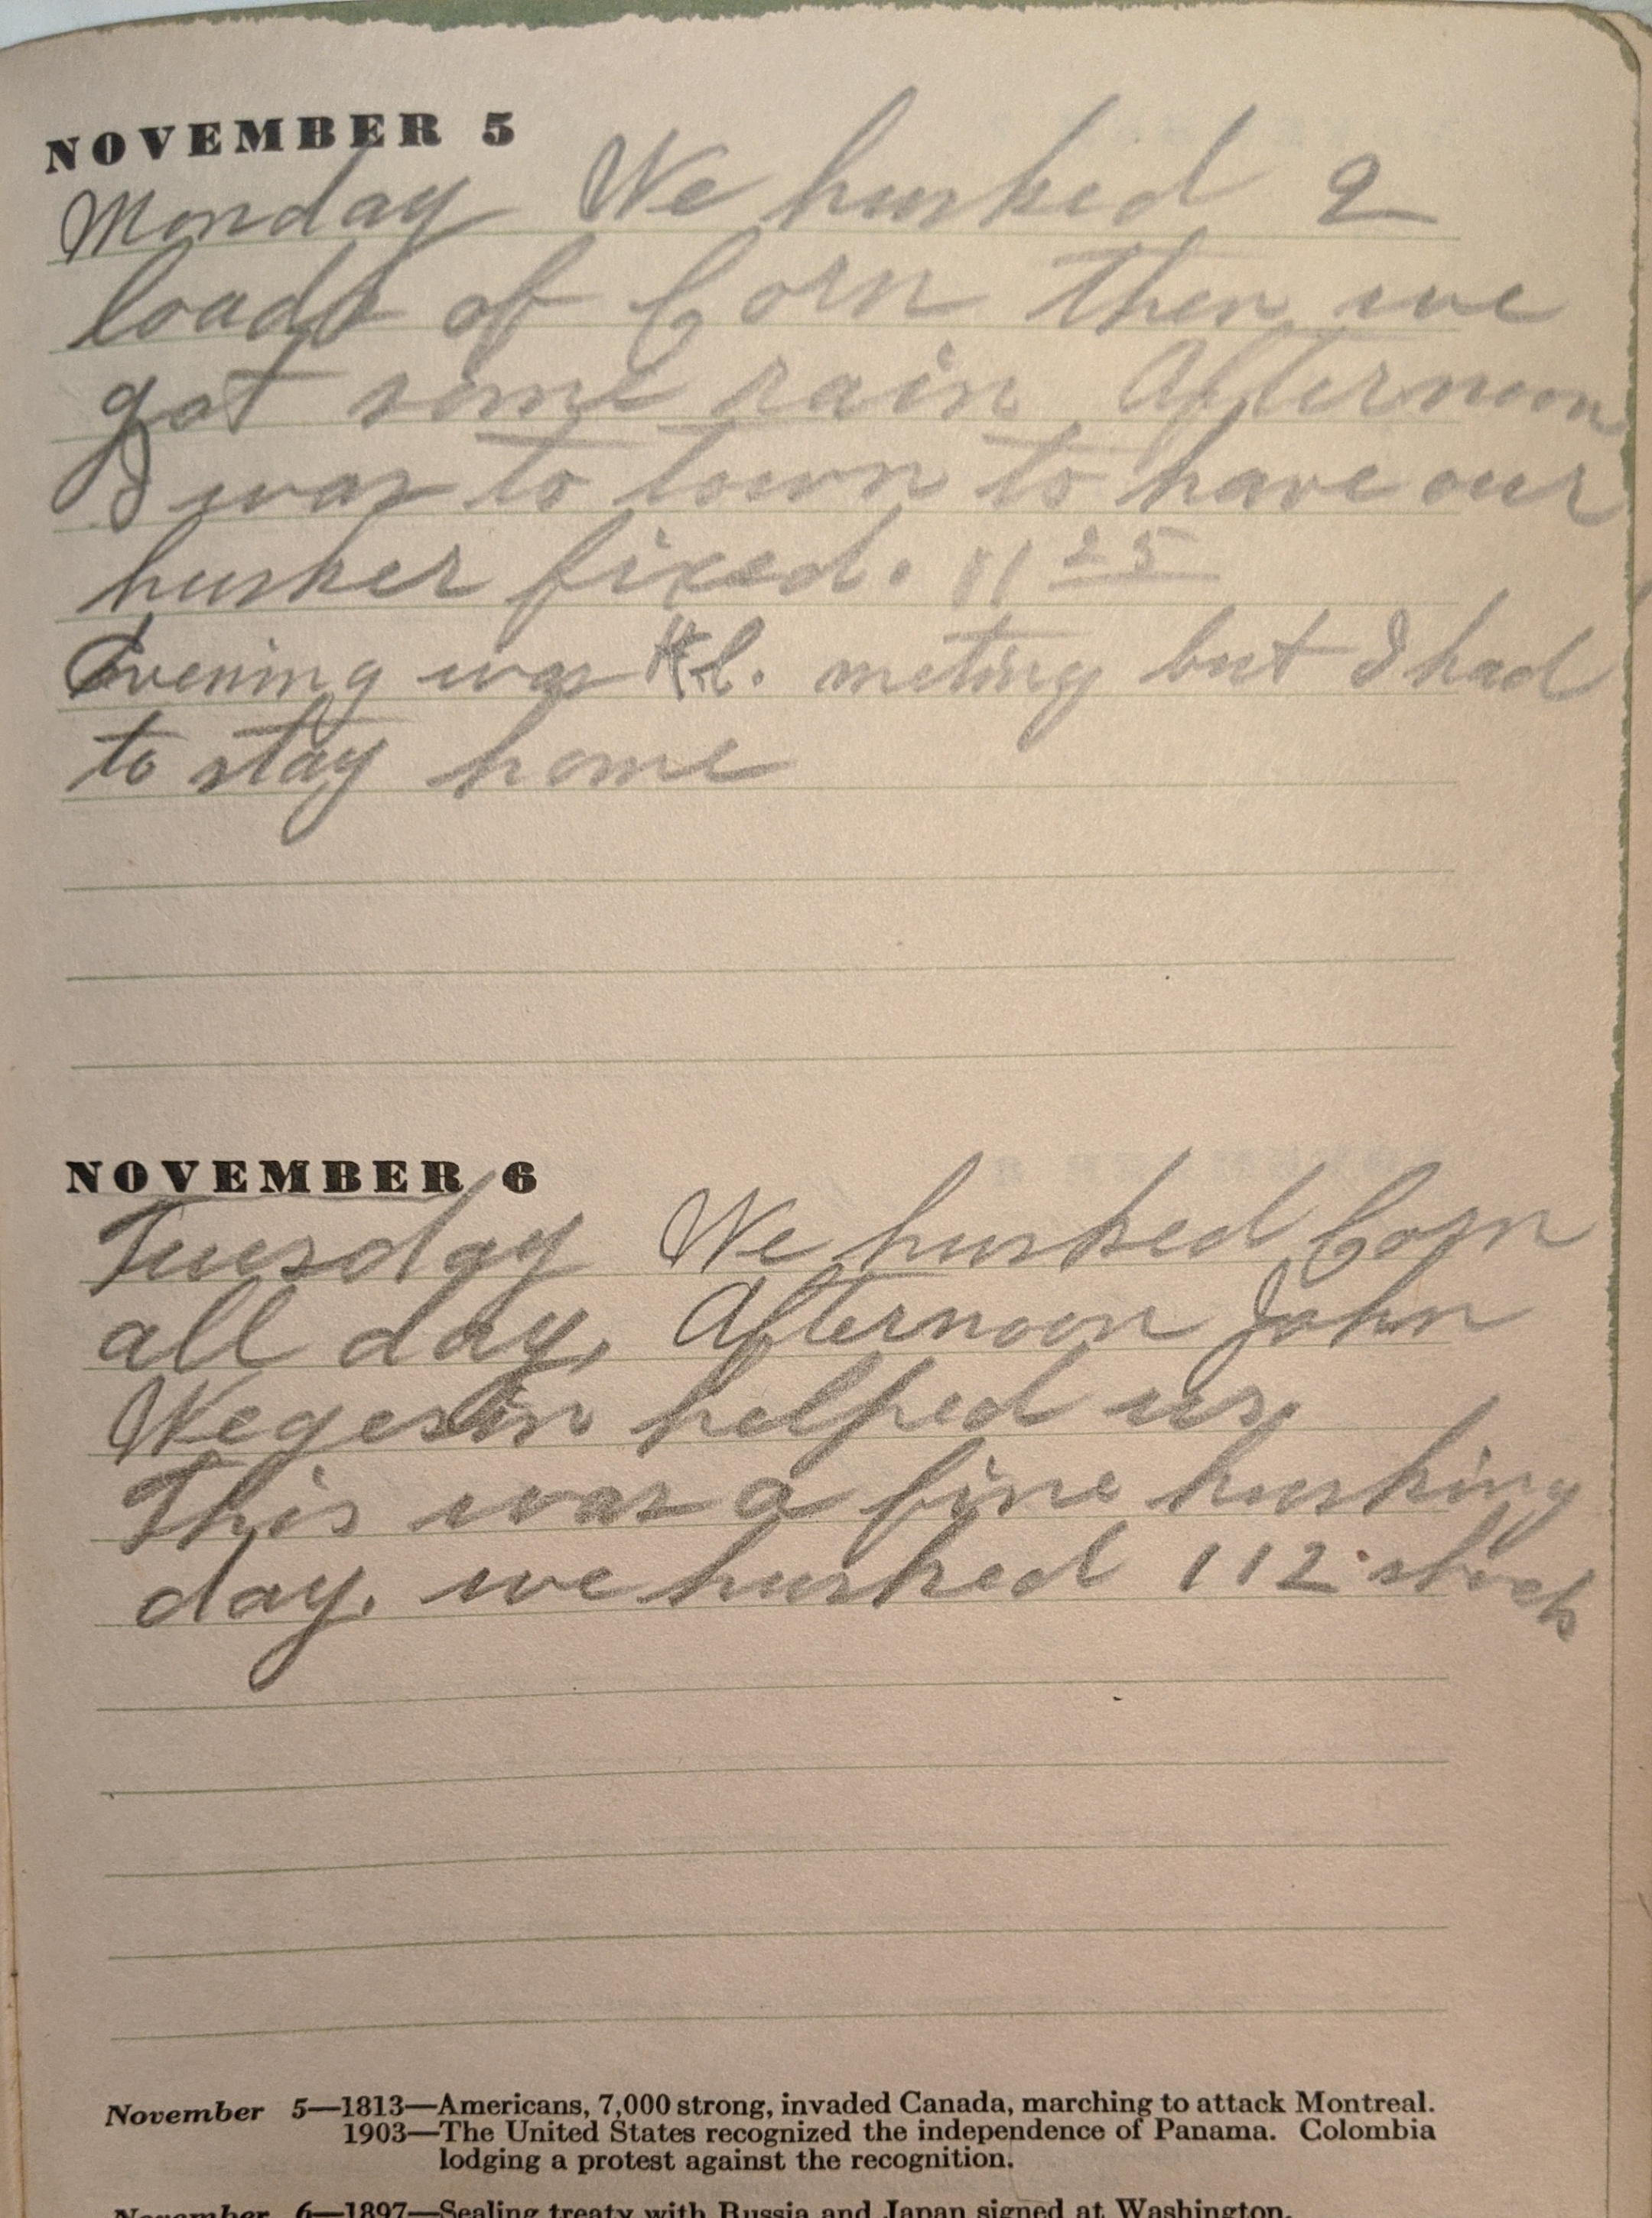 NOVEMBER 5
Monday We husked 2
loads of Corn then we
got some rain Afternoon
I was to town to have our
husker fixed. 11 25
Evening was meting but I had
to stay home
NOVEMBER 6
Tuesday We husked Corn
all day, Afternoon John
Wegesin helped us,
This was a fine husking
day. we husked 112 shock
November 5—1813—Americans, 7,000 strong, invaded Canada, marching to attack Montreal.
1903—The United States recognized the independence of Panama. Colombia
lodging a protest against the recognition.
November 6—1897—Sealing treaty with Russia and Japan signed at Washington.